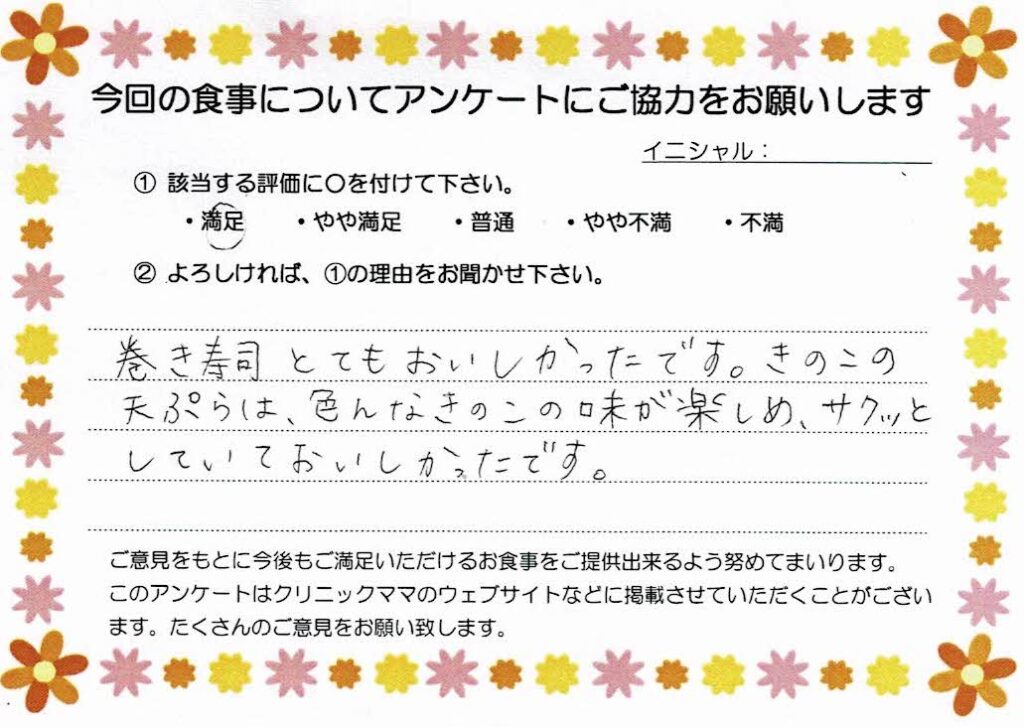 今回の食事についてアンケートにご協力をお願いします
イニシャル：
① 該当する評価に〇を付けて下さい。
・満足 ・やや満足 ・普通 ・やや不満 ・不満
② よろしければ、①の理由をお聞かせ下さい。
巻き寿司とてもおいしかったです。きのこの
天ぷらは、色んなきのこの味が楽しめ、サクッと
していておいしかったです。
ご意見をもとに今後もご満足いただけるお食事をご提供出来るよう努めてまいります。
このアンケートはクリニックママのウェブサイトなどに掲載させていただくことがござい
ます。たくさんのご意見をお願い致します。